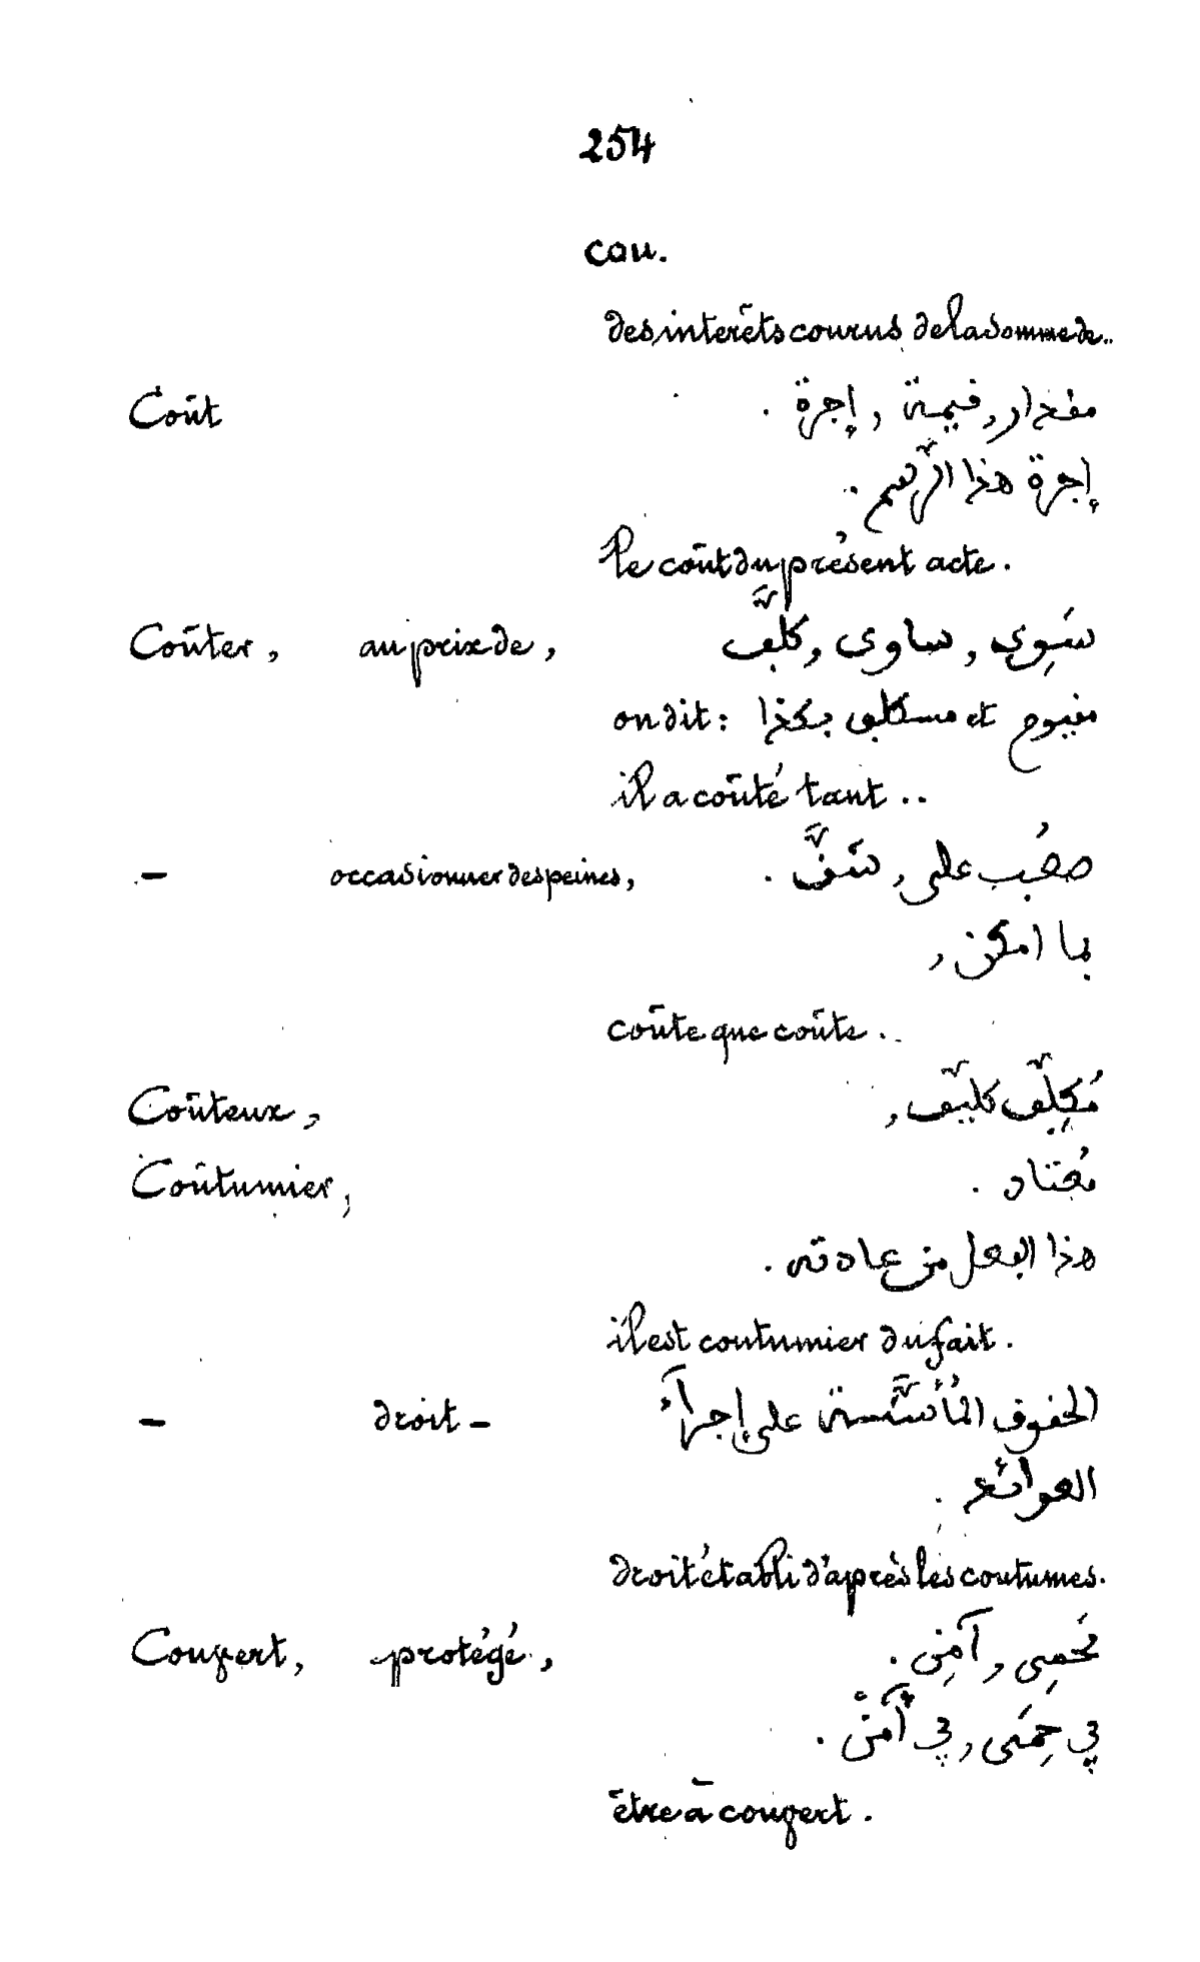 254
cou.
des interêts courus de la somme de..
Coût مقدار, قيمة, إجرة .
إجرة هذا الرّسم .
le coût du présent acte .
Coûter , au prix de , سَوِى, ساوى, كلَّف
on dit : مقيوم et مستكلف بكذا
il a coûté tant ..
— occasionner des peines, صعُب على, شقَّ .
بما امكن,
coûte que coûte ..
Coûteux , مُكِلّف كليّف,
Coûtumier, مُعتاد .
هذا الفعل من عادته .
il est coutumier du fait .
— droit — الحقوق المُأسَّسة على إجرآء
العوائد .
droit établi d'après les coutumes.
Couvert, protégé , مَحمِى, آمِن .
في حِمَى, في أَمنْ .
être à couvert .